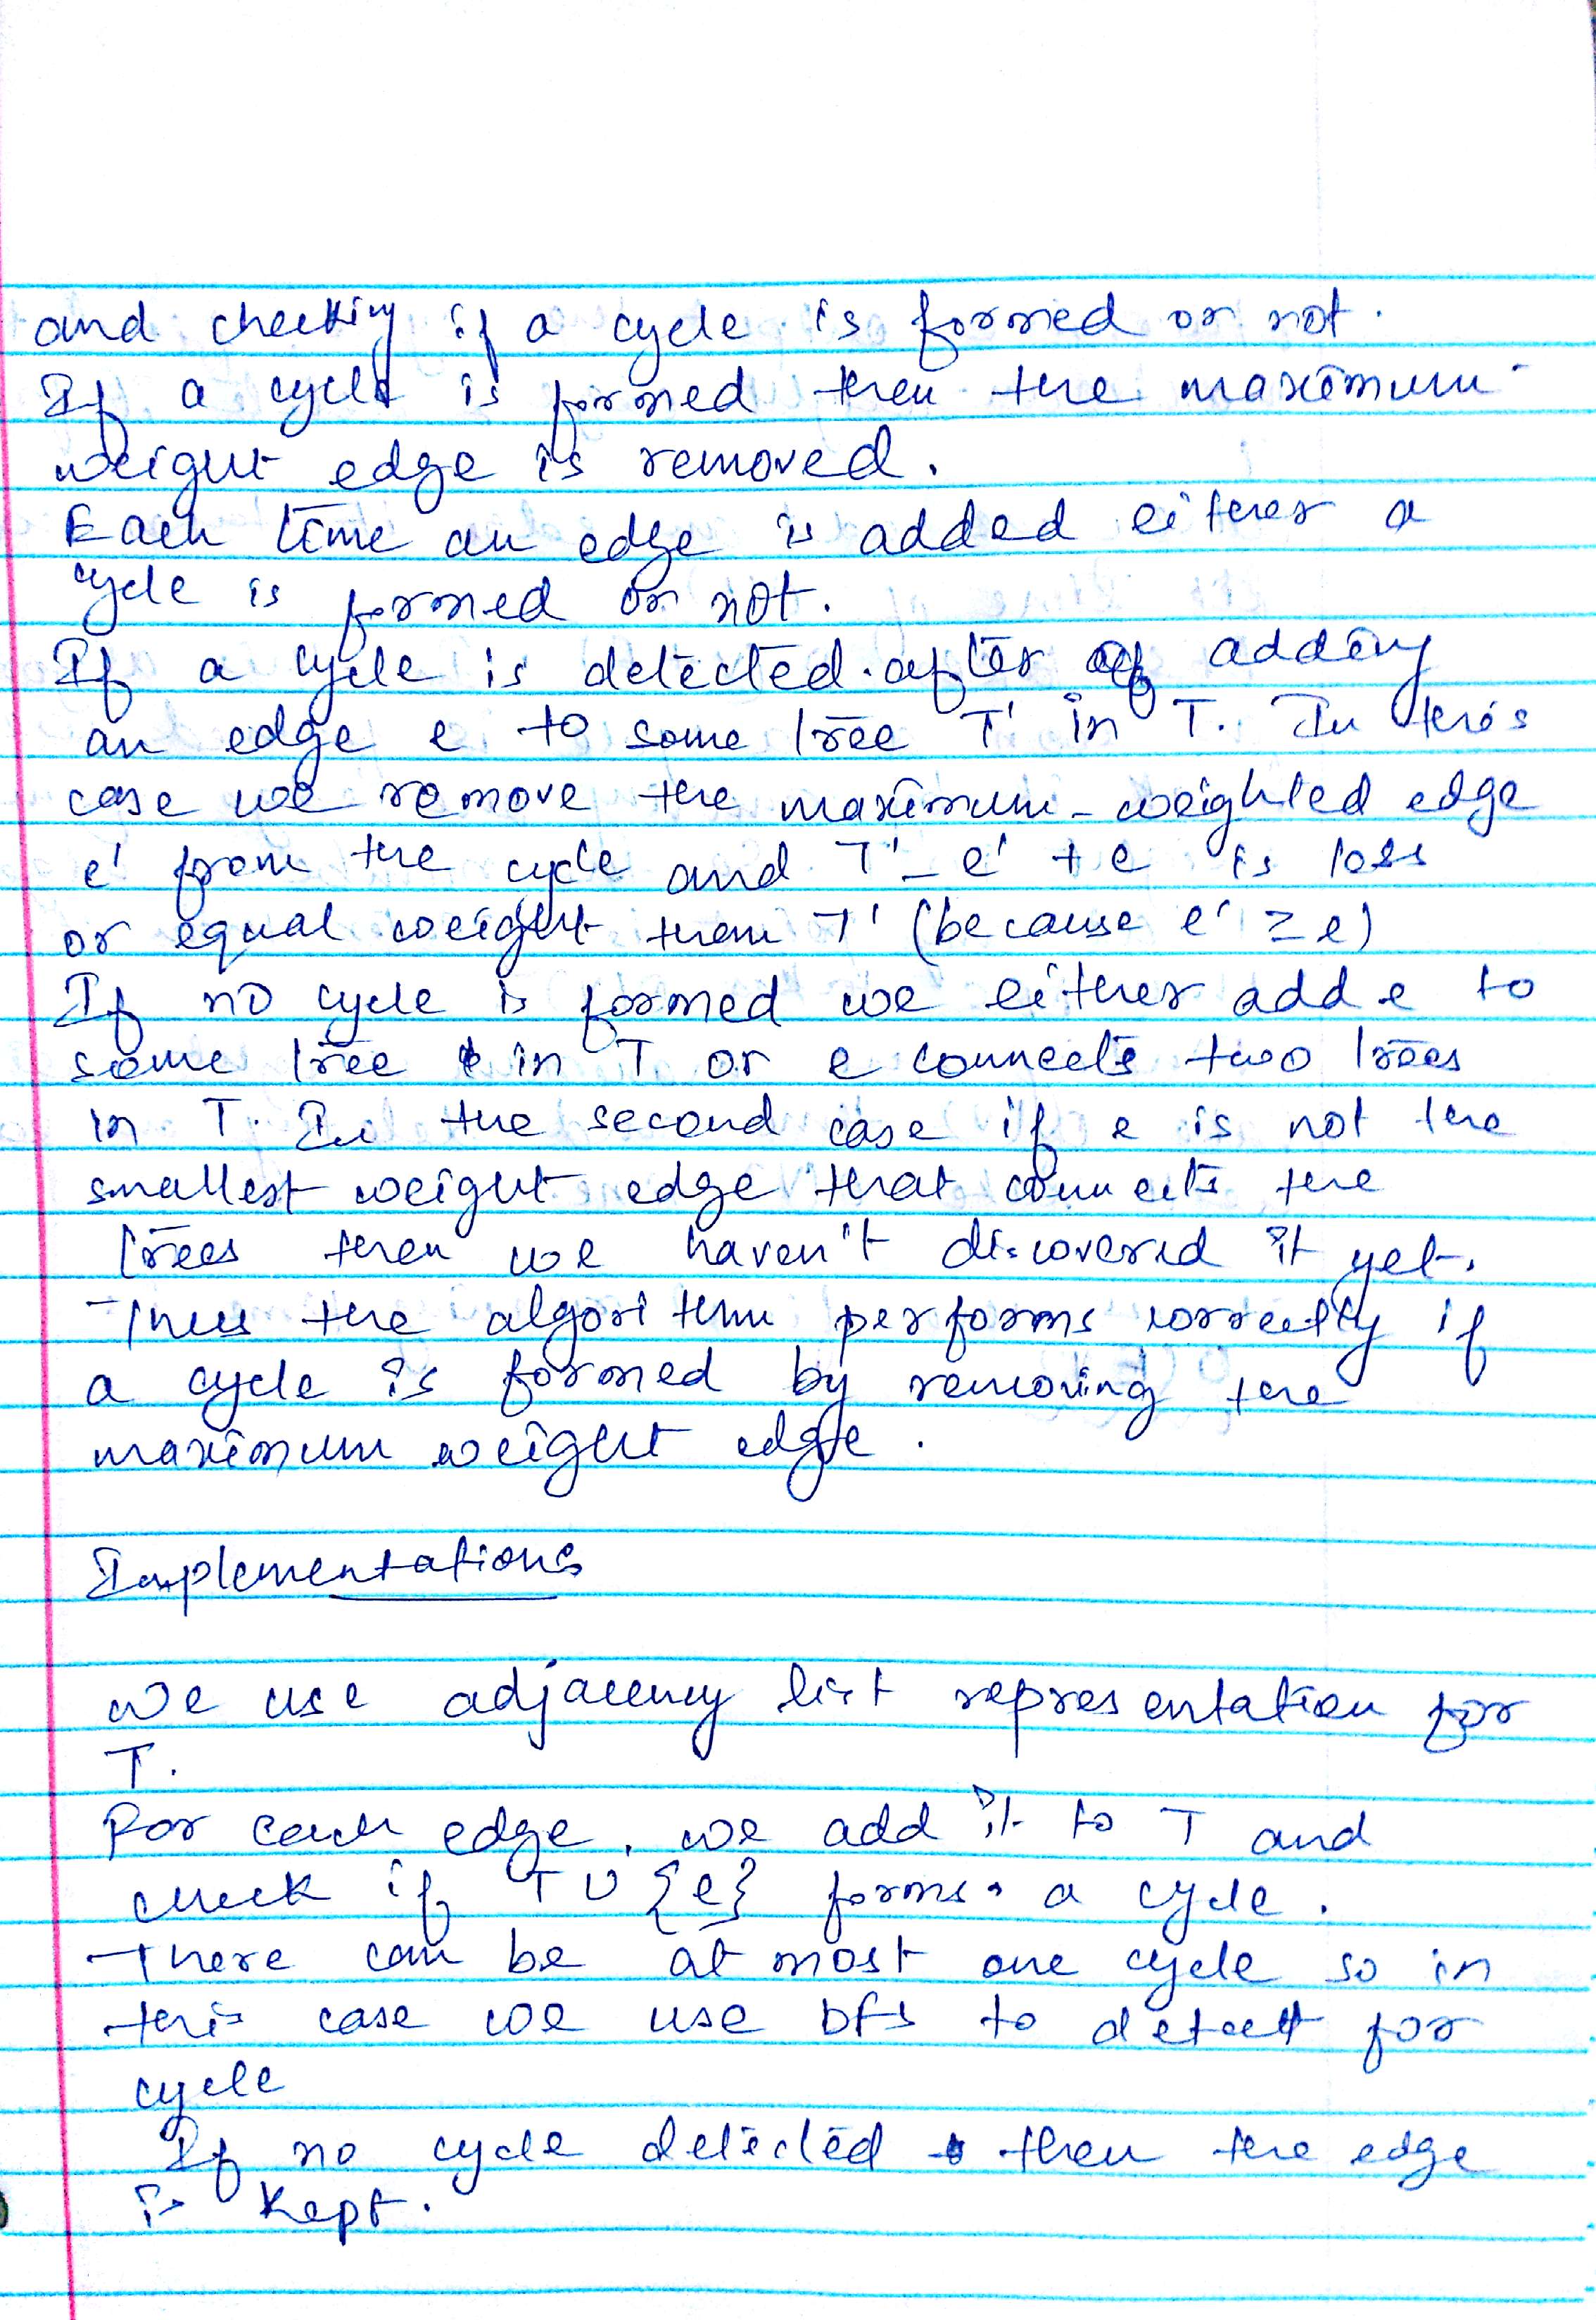 and checking if a cycle is formed or not.
If a cycle is formed then the maximum
weight edge is removed.
Each time an edge is added either a
cycle is formed or not.
If a cycle is detected after of adding
an edge e to some tree T' in T. In this
case we remove the maximum-weighted edge
e' from the cycle and T' - e' + e is less
or equal weight than T' (because e' ≥ e)
If no cycle is formed we either add e to
some tree in T or e connects two trees
in T. In the second case if e is not the
smallest weight edge that connects the
trees then we haven't discovered it yet.
Thus the algorithm performs correctly if
a cycle is formed by removing the
maximum weight edge.
Implementations
We use adjacency list representation for
T.
For each edge, we add it to T and
check if T ∪ {e} forms a cycle.
There can be at most one cycle so in
this case we use DFS to detect for
cycle
If no cycle detected then the edge
is kept.